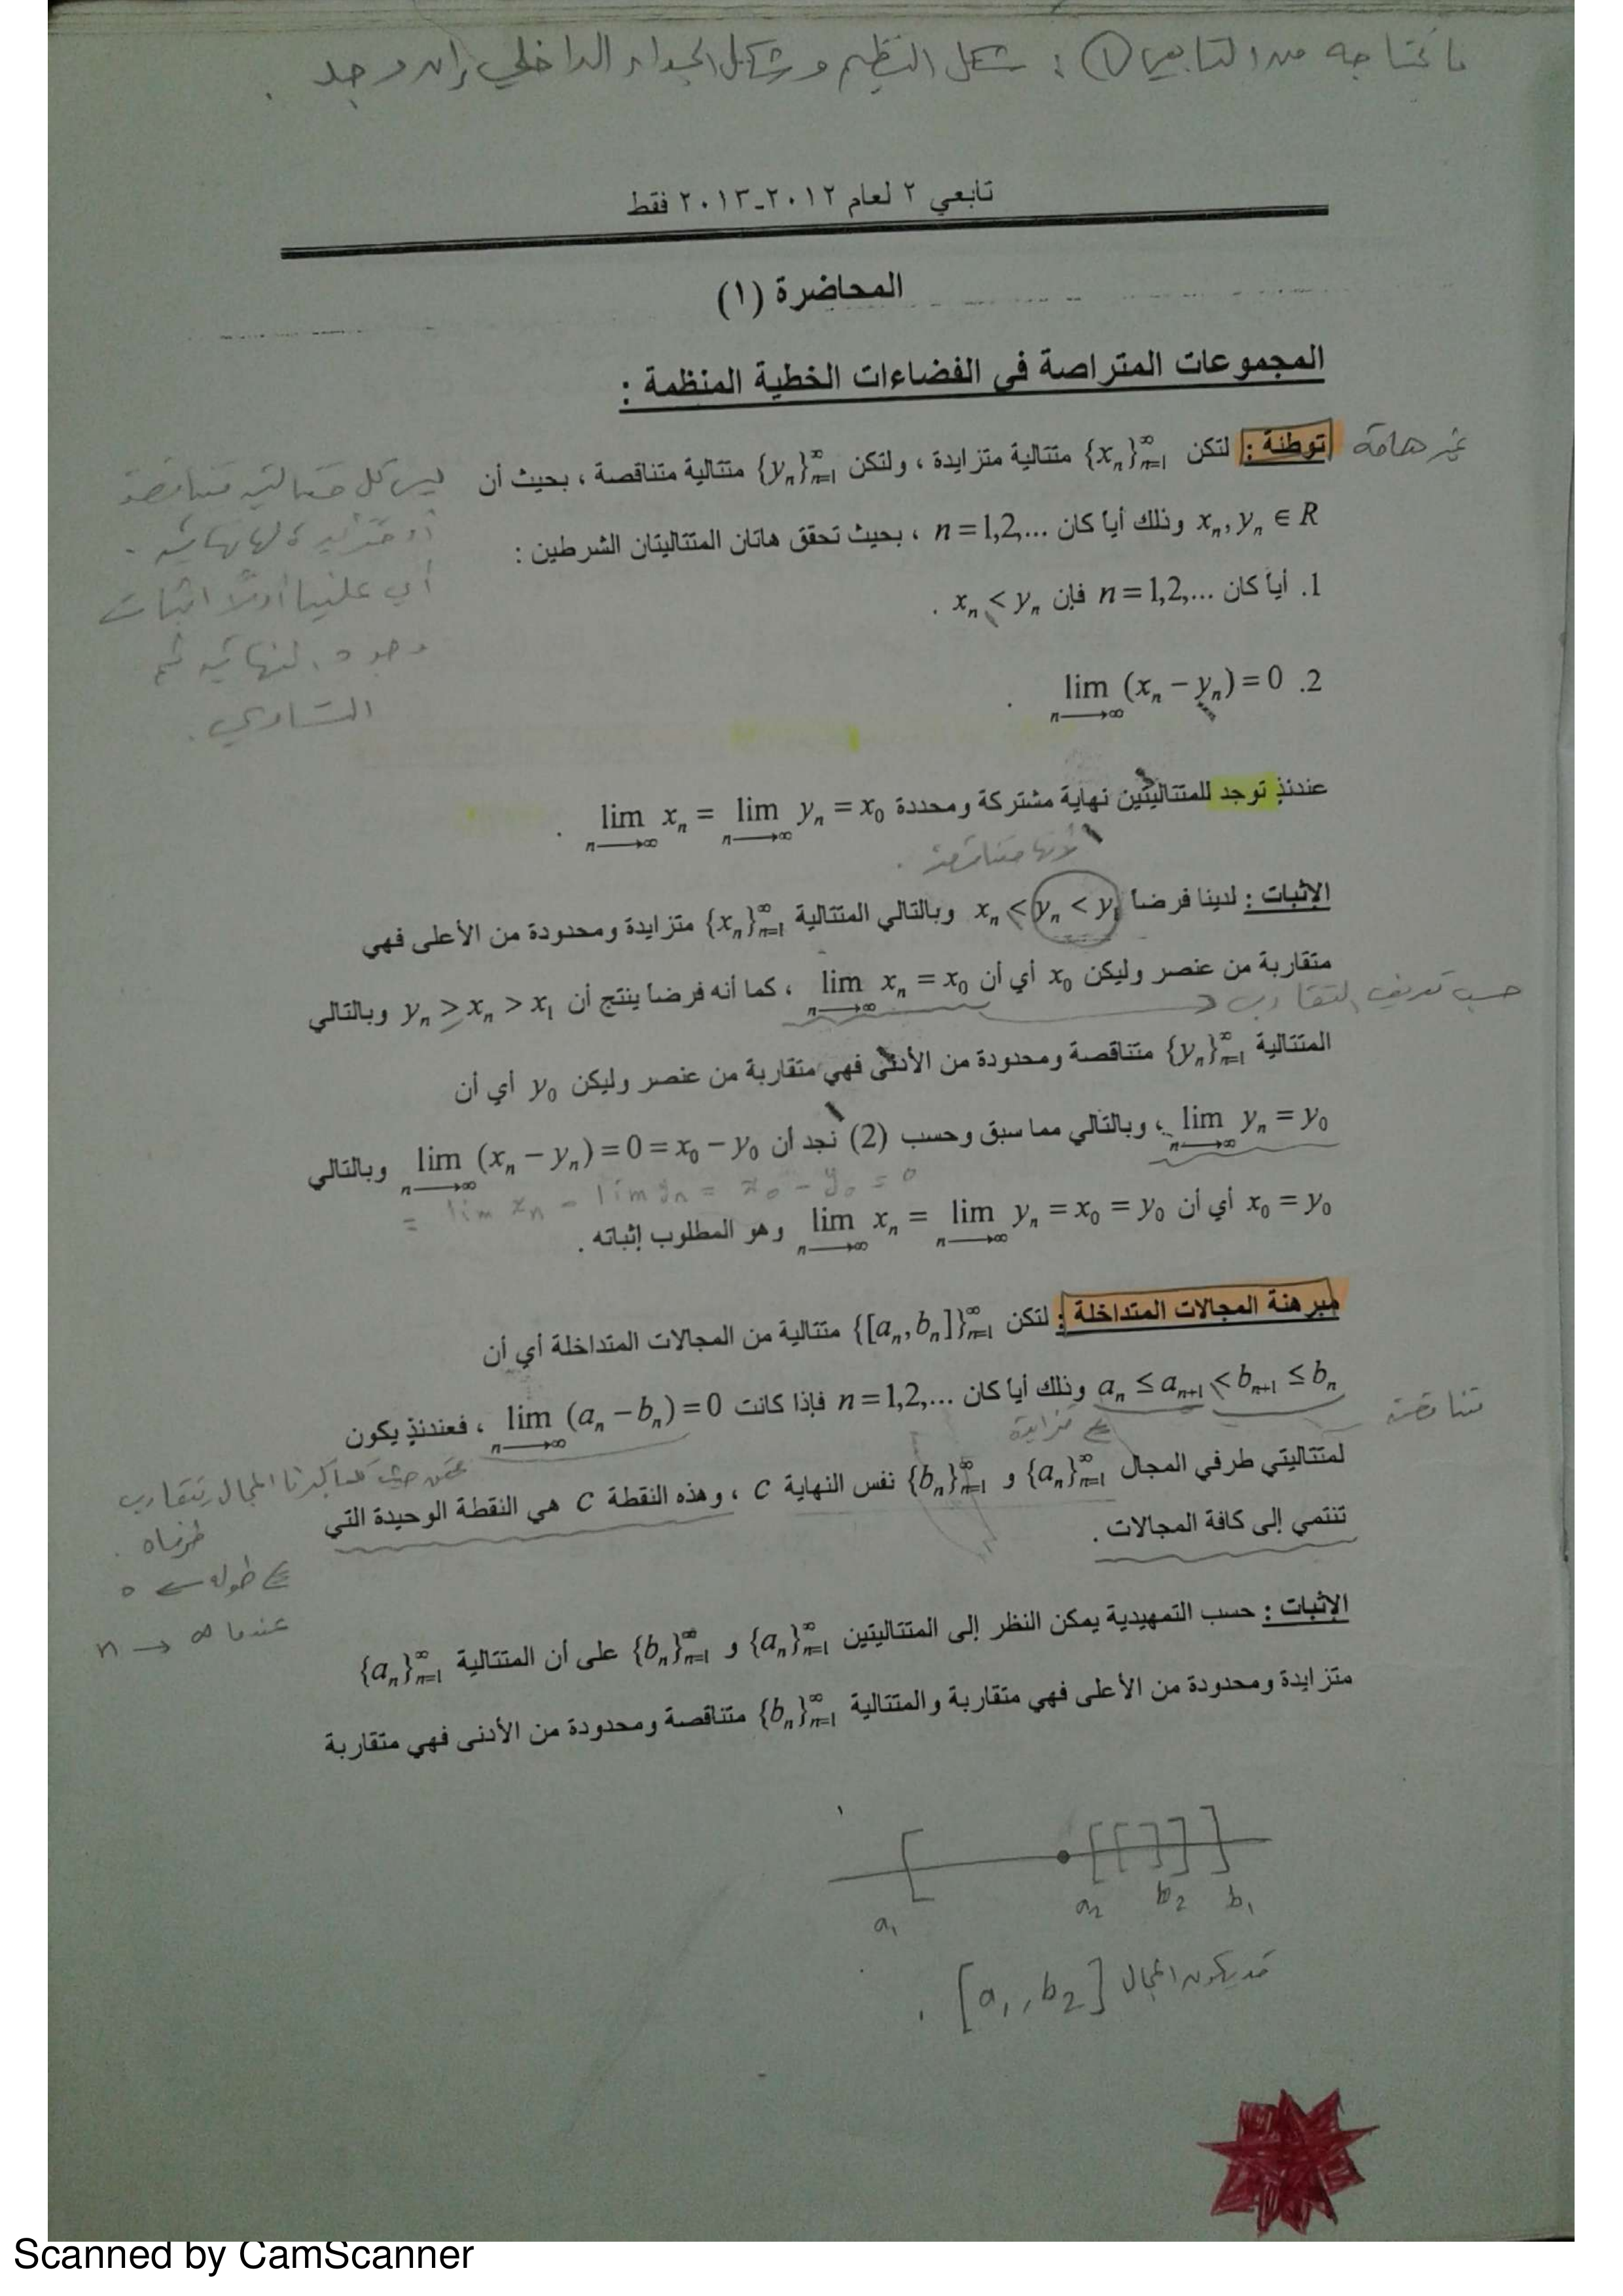 ما نحتاجه من التابعي ① : شكل النظيم وشكل الجداء الداخلي إن وجد .
تابعي ٢ لعام ٢٠١٢-٢٠١٣ فقط
المحاضرة (١)
المجموعات المتراصة في الفضاءات الخطية المنظمة :
غير هامة
توطئة : لتكن $\{x_n\}_{n=1}^{\infty}$ متتالية متزايدة ، ولتكن $\{y_n\}_{n=1}^{\infty}$ متتالية متناقصة ، بحيث أن
$x_n, y_n \in R$ وذلك أياً كان $n=1,2,...$ ، بحيث تحقق هاتان المتتاليتان الشرطين :
1. أياً كان $n=1,2,...$ فإن $x_n < y_n$ .
2. $\lim_{n \to \infty} (x_n - y_n) = 0$ .
ليس كل متتالية متناقصة
أو متزايدة لها نهاية .
أي علينا أولاً اثبات
وجود النهاية ثم
التساوي .
عندئذٍ توجد للمتتاليتين نهاية مشتركة ومحددة $\lim_{n \to \infty} x_n = \lim_{n \to \infty} y_n = x_0$ .
لأنها متناقصة .
الإثبات : لدينا فرضاً $x_n < y_n < y_1$ وبالتالي المتتالية $\{x_n\}_{n=1}^{\infty}$ متزايدة ومحدودة من الأعلى فهي
متقاربة من عنصر وليكن $x_0$ أي أن $\lim_{n \to \infty} x_n = x_0$ ، كما أنه فرضاً ينتج أن $y_n > x_n > x_1$ وبالتالي
حسب تعريف التقارب
المتتالية $\{y_n\}_{n=1}^{\infty}$ متناقصة ومحدودة من الأدنى فهي متقاربة من عنصر وليكن $y_0$ أي أن
$\lim_{n \to \infty} y_n = y_0$ ، وبالتالي مما سبق وحسب (2) نجد أن $\lim_{n \to \infty} (x_n - y_n) = 0 = x_0 - y_0$ وبالتالي
$= \lim x_n - \lim y_n = x_0 - y_0 = 0$
$x_0 = y_0$ أي أن $\lim_{n \to \infty} x_n = \lim_{n \to \infty} y_n = x_0 = y_0$ وهو المطلوب إثباته .
مبرهنة المجالات المتداخلة : لتكن $\{[a_n, b_n]\}_{n=1}^{\infty}$ متتالية من المجالات المتداخلة أي أن
$a_n \le a_{n+1} < b_{n+1} \le b_n$ وذلك أياً كان $n=1,2,...$ فإذا كانت $\lim_{n \to \infty} (a_n - b_n) = 0$ ، فعندئذٍ يكون
متناقصة
متزايدة
لمتتاليتي طرفي المجال $\{a_n\}_{n=1}^{\infty}$ و $\{b_n\}_{n=1}^{\infty}$ نفس النهاية $c$ ، وهذه النقطة $c$ هي النقطة الوحيدة التي
تنتمي إلى كافة المجالات .
كلما كبرنا المجال يتقارب
طرفاه .
طوله → 0
عندما n → ∞
الإثبات : حسب التمهيدية يمكن النظر إلى المتتاليتين $\{a_n\}_{n=1}^{\infty}$ و $\{b_n\}_{n=1}^{\infty}$ على أن المتتالية $\{a_n\}_{n=1}^{\infty}$
متزايدة ومحدودة من الأعلى فهي متقاربة والمتتالية $\{b_n\}_{n=1}^{\infty}$ متناقصة ومحدودة من الأدنى فهي متقاربة
$a_1$ $a_2$ $b_2$ $b_1$
قد يكون المجال $[a_1, b_2]$ .
Scanned by CamScanner